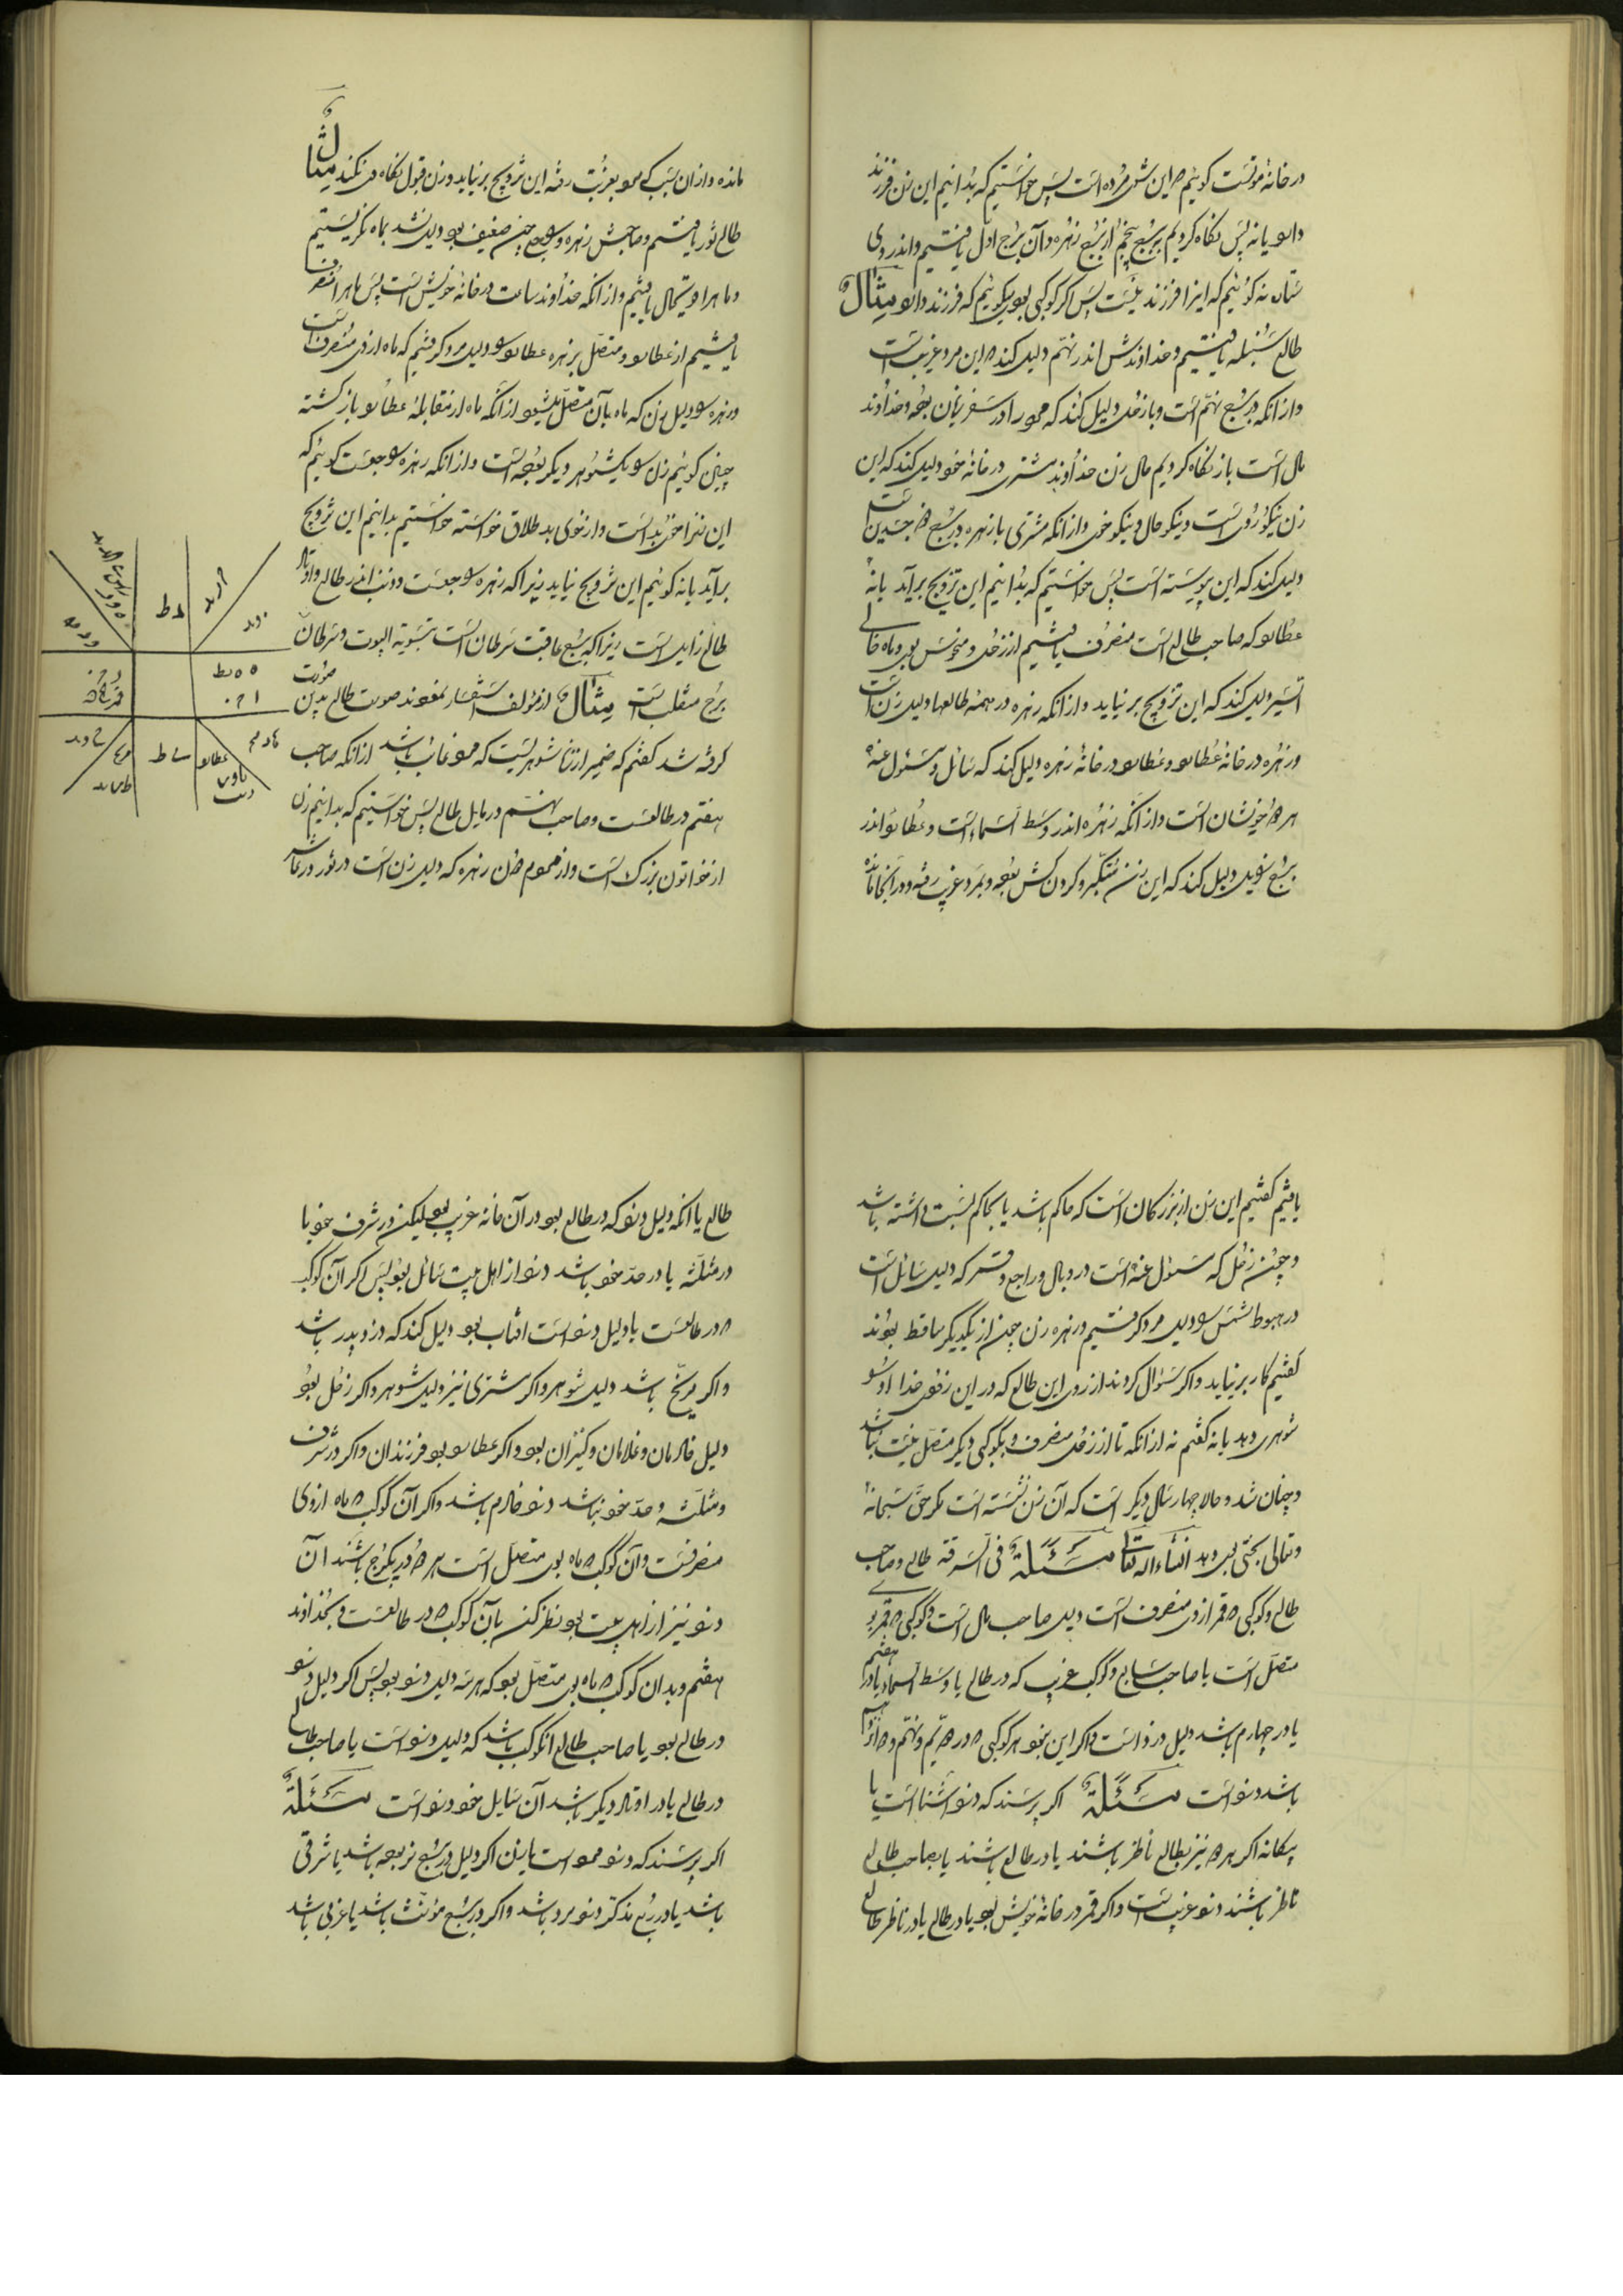 در خانهٔ موتست کوئیم که این شوی مرده است پس خواستیم که بدانیم این زن فرزند
دارد یا نه پس نکاه کردیم ببرج پنجم از برج زهره و آن برج اول یافتیم و اندر وی
ستاره نه کوئیم که اینرا فرزند نیست پس اکر کوکبی بود بکوئیم که فرزند دارد مثال
طالع سنبله یافتیم و خداوندش اندر نهم دلیل کند که این مرد غریب است
و ازانکه در برج نهم است و با زحل دلیل کند که مرد را در سفر زیان بوده و خداوند
مال است باز نکاه کردیم مال زن خداوند مشتری در خانهٔ خود دلیل کند که این
زن نیکو روی است و نیکو حال و نیکو خوی و ازانکه مشتری با زهره در برج ذو جسدین است
دلیل کند که این پیوسته است پس خواستیم که بدانیم این تزویج برآید یا نه
عطارد که صاحب طالع است منصرف یافتیم از زحل و منحوس بود و ماه خالی
السیر دلیل کند که این تزویج بر نیاید و ازانکه زهره در همهٔ طالعها دلیل زن است
و زهره در خانهٔ عطارد و عطارد در خانهٔ زهره دلیل کند که سائل و مسئول عنه
هر دو خویشان است و ازانکه زهره اندر وسط السماء است و عطارد اندر
برج دلیل کند که این زن متکبر و کردن کش بوده و بمرد غریب رفته و در آنجا مانده
مانده و ازان سبب که مرد بغربت رفته این تزویج بر نیاید و زن قبول نکاه می نکند مثال
طالع ثور یافتیم و صاحبش زهره و راجع چنین ضعیف بود دلیل نشد بماه نکریستیم
و ماه را قویحال یافتیم و ازانکه خداوند ساعت در خانهٔ خویش است پس ماه را منصرف
یافتیم از عطارد و متصل بزهره عطارد را دلیل مرد کرفتیم که ماه از وی منصرف است
و زهره را دلیل زن که ماه بآن متصل میشود ازانکه ماه از مقابلهٔ عطارد باز کشته
چنین کوئیم زن را یک شوهر دیکر بوده است و ازانکه زهره راجعست کوئیم که
این زنرا خوی بد است و از خوی بد طلاق خواسته خواستیم بدانیم این تزویج
برآید یا نه کوئیم این تزویج نیاید زیرا که زهره راجعست و ذنب اندر طالع و اوتاد
طالع زایل است زیرا که برج عاقبت سرطان است بتسویة البیوت و سرطان
برج منقلب است مثال از مؤلف استفسار نمودند صورت طالع بدین صورت
کرفته شد کفتم که ضمیر از زنا شوهریست که مرد غائب باشد ازانکه صاحب
هفتم در طالعست و صاحب نهم در مایل طالع پس خواستیم که بدانیم زن
از خواتون بزرک است و از عموم چون زهره که دلیل زن است در ثور در عاشر
یافتیم کفتیم این زن از بزرکان است که حاکم باشد یا بحاکم نسبت داشته باشد
و چون زحل که مسئول عنه است در وبال و راجع و قمر که دلیل سائل است
در هبوط شمس را دلیل مرد کرفتیم و زهره زن چون از یکدیکر ساقط بودند
کفتیم کار بر نیاید و اکر سؤال کردند از روی این طالع که در این زفوی خدا او را
شوهری دهد یا نه کفتم نه ازانکه تا از زحل منصرف و بکوکبی دیکر متصل نیست نباشد
و چنان شد و حالا چهار سال دیکر است که آن زن نشسته است مکر حق سبحانه
و تعالی بختی بوی دهد انشاء الله تعالی مسئلة فی السرقه طالع و صاحب
طالع و کوکبی که قمر از وی منصرف است دلیل صاحب مال است و کوکبی که قمر بدو
متصل است یا صاحب سابع و کوکب غریب که در طالع یا وسط السماء یا در هفتم
یا در چهارم باشد دلیل دزد است و اکر این نبود هر کوکبی که در سیم و نهم و دوازدهم
باشد دزد است مسئلة اکر پرسند که دزد آشنا است یا
بیکانه اکر هر دو نیر بطالع ناظر باشند یا در طالع باشند یا بصاحب طالع
ناظر باشند دزد غریب است و اکر قمر در خانهٔ خویش بود یا در طالع یا در ناظر طالع
طالع یا انکه دلیل دزد که در طالع بود در آن خانه غریب بود لیکن در شرف خود یا
در مثلثه یا در حد خود باشد دزد از اهل بیت سائل بود پس اکر آن کوکب
که در طالعست یا دلیل دزد است آفتاب بود دلیل کند که دزد پدر باشد
و اکر مریخ باشد دلیل شوهر و اکر مشتری نیز دلیل شوهر و اکر زحل بود
دلیل خادمان و غلامان و کنیزان بود و اکر عطارد بود فرزندان و اکر در شرف
و مثلثه و حد خود نباشد دزد خادم باشد و اکر آن کوکب که ماه از وی
منصرفست و آن کوکب که ماه بوی متصل است هر دو در یکبرج باشند آن
دزد نیز از اهل بیت بود نظر کن بآن کوکب که در طالعست و بخداوند
هفتم و بدان کوکب که ماه بوی متصل بود که هر سه دلیل دزد بود پس اکر دلیل دزد
در طالع بود یا صاحب طالع آنکوکب باشد که دلیل دزد است یا صاحب طالع
در طالع یا در اوتاد دیکر باشد آن سایل خود دزد است مسئلة
اکر پرسند که دزد مرد است یا زن اکر دلیل در برج نر بوده باشد یا شرقی
باشد یا در ربع مذکر دزد مرد باشد و اکر در برج مؤنث باشد یا غربی باشد